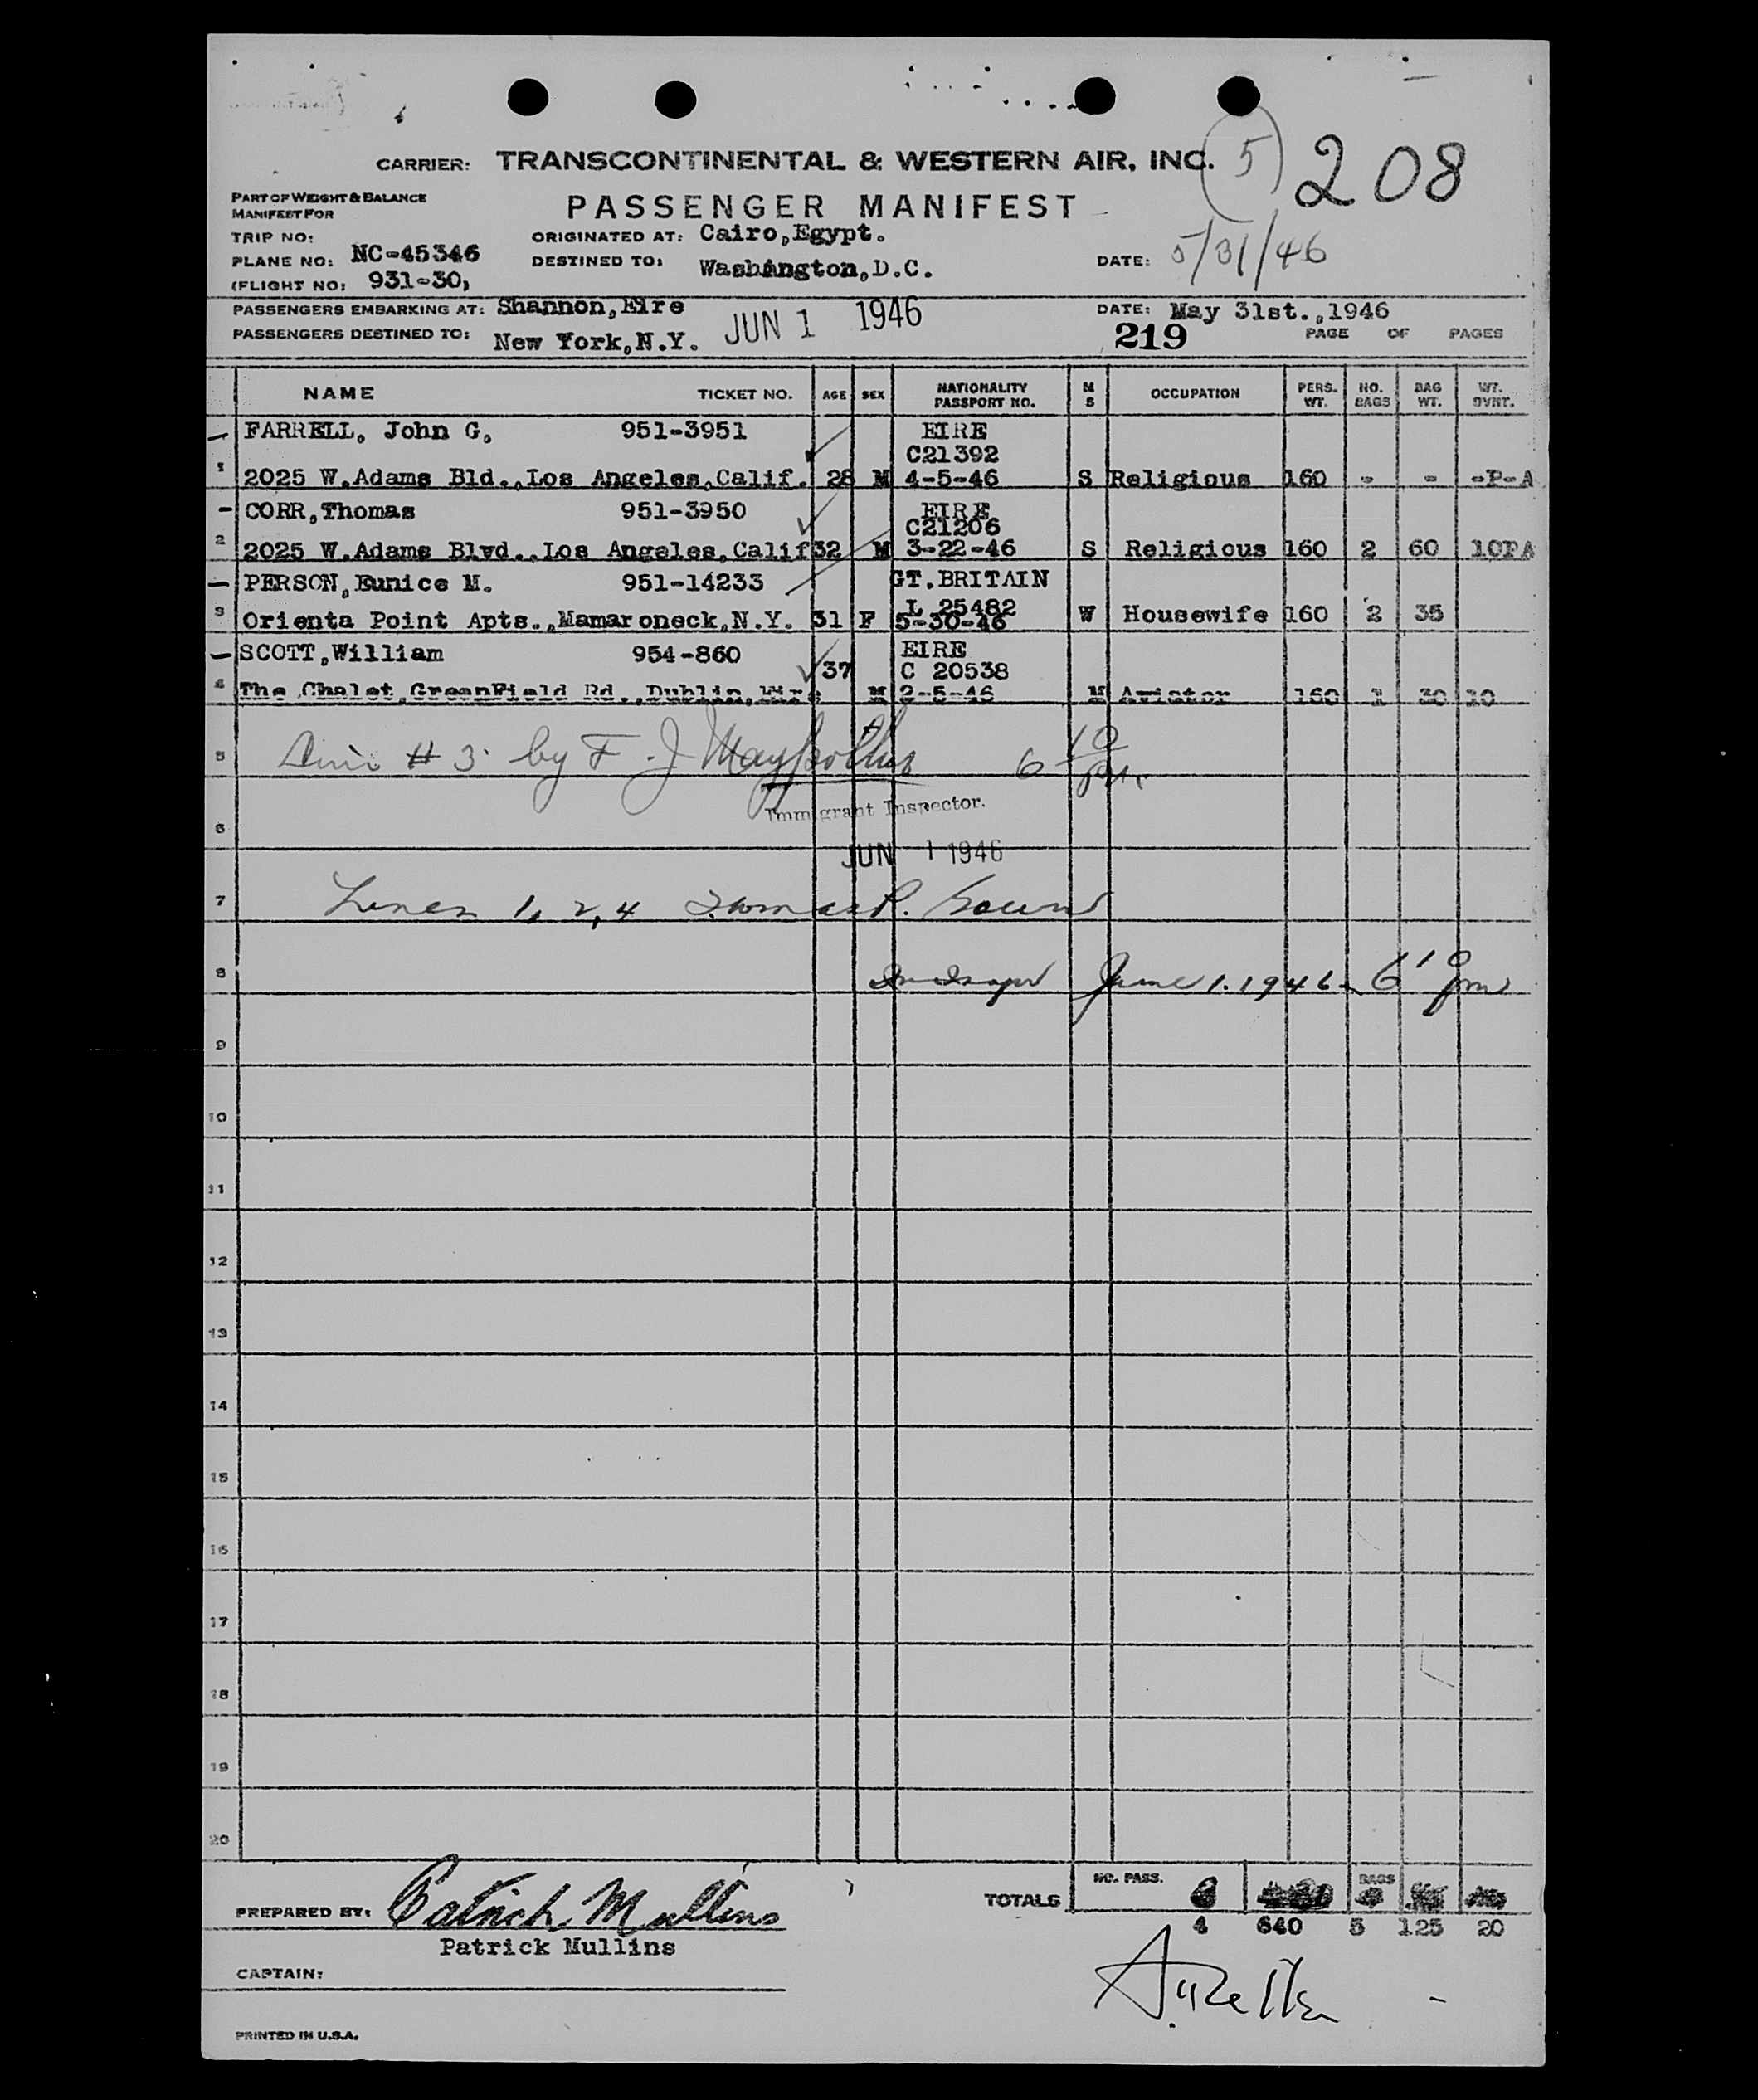 5 208
CARRIER: TRANSCONTINENTAL & WESTERN AIR, INC.
PART OF WEIGHT & BALANCE
MANIFEST FOR
PASSENGER MANIFEST
TRIP NO:
ORIGINATED AT: Cairo,Egypt.
PLANE NO: NC-45346
DESTINED TO: Washington,D.C.
DATE: 5/31/46
(FLIGHT NO: 931-30,
PASSENGERS EMBARKING AT: Shannon,Eire
JUN 1 1946
DATE: May 31st.,1946
PASSENGERS DESTINED TO: New York,N.Y.
219 PAGE OF PAGES
NAME TICKET NO. AGE SEX NATIONALITY PASSPORT NO. M S OCCUPATION PERS. WT. NO. BAGS BAG WT. WT. OVRT.
FARRELL, John G. 951-3951 EIRE
C21392
1 2025 W.Adams Bld.,Los Angeles,Calif. 28 M 4-5-46 S Religious 160 - - -P-A
CORR,Thomas 951-3950 EIRE
C21206
2 2025 W.Adams Blvd.,Los Angeles,Calif 32 M 3-22-46 S Religious 160 2 60 10PA
PERSON,Eunice M. 951-14233 GT.BRITAIN
L 25482
3 Orienta Point Apts.,Mamaroneck,N.Y. 31 F 5-30-46 W Housewife 160 2 35
SCOTT,William 954-860 EIRE
37 C 20538
4 The Chalet,GreenField Rd.,Dublin,Eire M 2-5-46 M Aviator 160 1 30 10
5 # 3 by F. J 6 10 pm
Immigrant Inspector.
6
JUN 1 1946
7 Lines 1, 2, 4 Thomas P.
8 June 1. 1946 6 10 pm
9
10
11
12
13
14
15
16
17
18
19
20
PREPARED BY: Patrick Mullins
TOTALS NO. PASS. BAGS
4 640 5 125 20
Patrick Mullins
CAPTAIN:
PRINTED IN U.S.A.